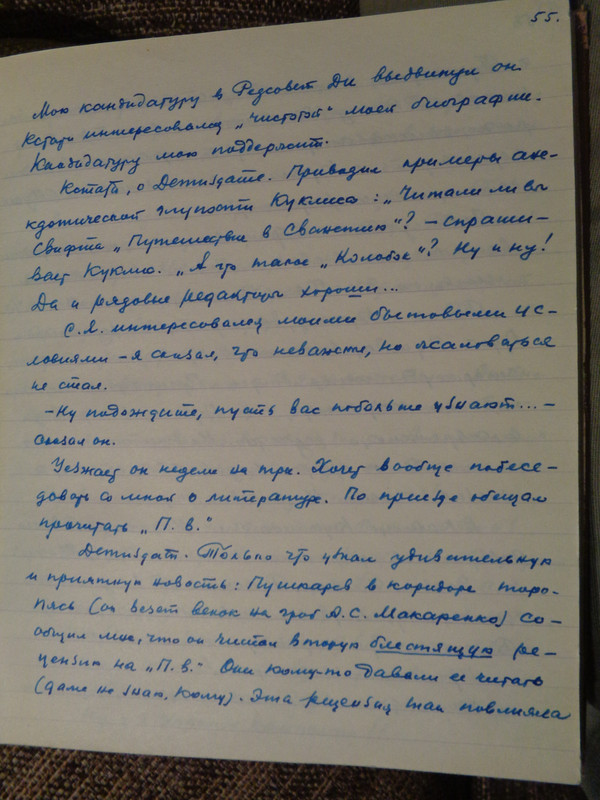 55.
Мою кандидатуру в Редсовет Ди выдвинул он.
Кстати интересовался „чистотой“ моей биографии.
Кандидатуру мою поддержит.
Кстати, о Детиздате. Приводил примеры ане-
кдотической глупости Куклиса: „Читали ли вы
Свифта „Путешествие в Сванетию“? – спраши-
вает Куклис. „А что такое „Колобок“? Ну и ну!
Да и рядовые редакторы хороши...
С.Я. интересовался моими бытовыми ус-
ловиями – я сказал, что неважные, но жаловаться
не стал.
– Ну подождите, пусть вас побольше узнают... –
сказал он.
Уезжает он недели на три. Хочет вообще побесе-
довать со мной о литературе. По приезде обещал
прочитать „П. в.“
Детиздат. Только что узнал удивительную
и приятную новость: Пушкарев в коридоре торо-
пясь (он везет венок на гроб А.С. Макаренко) со-
общил мне, что он читал вторую блестящую ре-
цензию на „П. в.“ Они кому-то давали ее читать
(даже не знаю, кому). Эта рецензия так повлияла